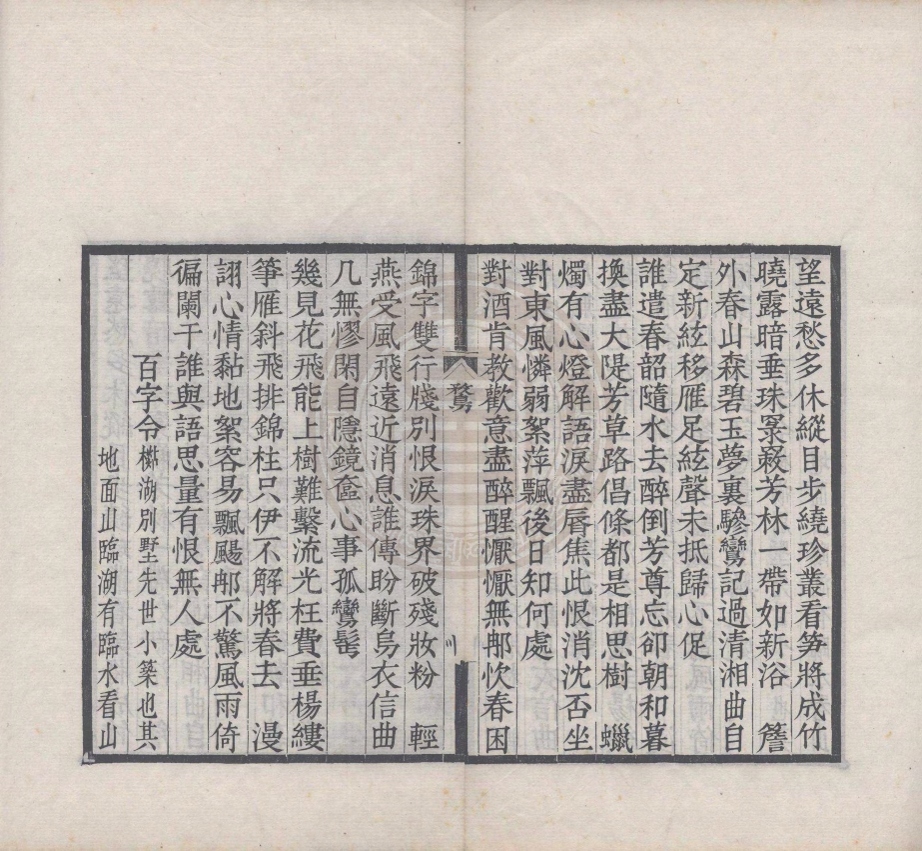 望遠愁多休縱目步繞珍叢看筍將成竹
曉露暗垂珠㬥𣪊芳林一帶如新浴　簷
外春山森碧玉夢裏驂鸞記過清湘曲自
定新絃移雁足絃聲未抵歸心促
誰遣春韶隨水去醉倒芳尊忘卻朝和暮
換盡大隄芳草路倡條都是相思樹　蠟
燭有心燈解語淚盡脣焦此恨消沈否坐
對東風憐弱絮萍飄後日知何處
對酒肯教歡意盡醉醒懨懨無那忺春困
鶩
川
錦字雙行牋別恨淚珠界破殘妝粉　輕
燕受風飛遠近消息誰傳盼斷烏衣信曲
几無憀閑自隱鏡奩心事孤鸞髩
幾見花飛能上樹難繫流光枉費垂楊縷
箏雁斜飛排錦柱只伊不解將春去　漫
詡心情黏地絮容易飄颺那不驚風雨倚
徧闌干誰與語思量有恨無人處
百字令
湖別墅先世小築也其
地面山臨湖有臨水看山